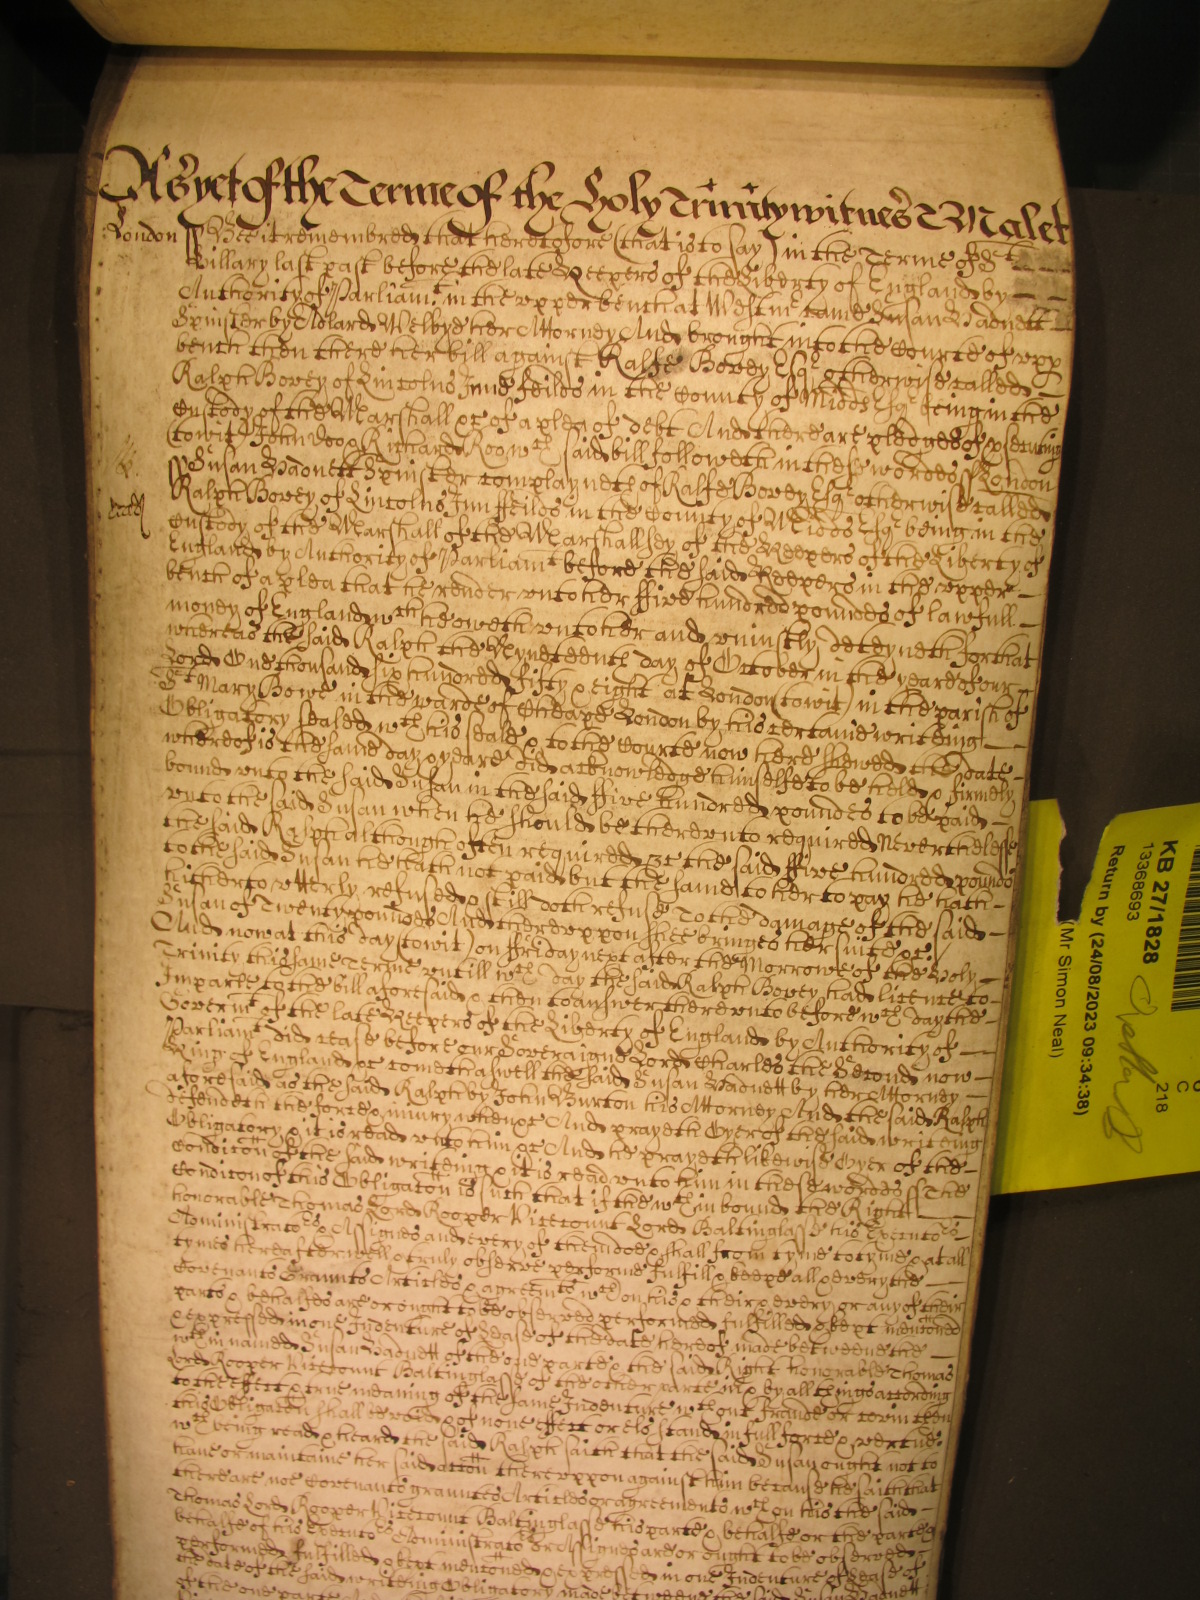 As yet of the Terme of the Holy Trinity witnes T Malet
London ss Bee it remembred that heretofore (that is to say) in the Terme of St
Hillary last past before the late Keepers of the Liberty of England by
Authority of Parliamt in the upper bench at Westmr came Susan Badnett
Spinster by Adlard Welbye her Attorney And brought into the Courte of upp
bench then there her bill against Ralfe Bovey Esqr otherwise called
Ralph Bovey of Lincolns Inne feilds in the County of Midds Esqr being in the
Custody of the Marshall &c of a plea of debt And there are pledges of psecuting
(towit) John Doo & Richard Roo wch said bill followeth in these wordes ss London
ss Susan Badnett Spinster complayneth of Ralfe Bovey Esqr otherwise called
Ralph Bovey of Lincolns Inn ffeilds in the County of Midds Esqr being in the
Custody of the Marshall of the Marshallsey of the Keepers of the Liberty of
England by Authority of Parliamt before the said Keepers in the upper
bench of a plea that he render unto her ffive hundred poundes of lawfull
money of England wch he oweth unto her and uniustly deteyneth for that
whereas the said Ralph the Nyneteenth day of October in the yeare of our
Lord One thousand six hundred fifty & eight at London (towit) in the parish of
St Mary Bowe in the warde of Cheape London by his certaine writeing
Obligatory sealed wth his seale & to the Courte now here shewed the date
whereof is the same day & yeare did acknowledge himselfe to be held & firmely
bound unto the said Susan in the said ffive hundred poundes to be paid
unto the said Susan when he should be thereunto required Neverthelesse
the said Ralph although often required &c the said ffive hundred pounds
to the said Susan he hath not paid but the same to her to pay he hath
hitherto utterly refused & still doth refuse To the damage of the said
Susan of Twenty poundes And thereuppon shee bringes her suite &c
And now at this day (towit) on ffriday next after the Morrowe of the Holy
Trinity this same Terme untill wch day the said Ralph Bovey had licence to
Imparle to the bill aforesaid & then to answer thereunto before wch day the
Governmt of the late Keepers of the Liberty of England by Authority of
Parliamt did cease before our Soveraigne Lord Charles the Second now
King of England &c cometh aswell the said Susan Badnett by her Attorney
aforesaid as the said Ralph by John Burton his Attorney And the said Ralph
defendeth the force & iniury when &c And prayeth Oyer of the said writeing
Obligatory & it is read unto him &c And he prayeth likewise Oyer of the
Condicon of the said writeing & it is read unto him in these wordes ss The
Condicon of this Obligacon is such that if the wthin bound the Right
honorable Thomas Lord Rooper Viccount Lord Baltinglasse his Executors
Administrators & Assignes and every of them doe & shall from tyme to tyme & at all
tymes hereafter well & truly observe performe fulfill & keepe all & every the
Covenants Graunts Articles & agreemts wch on his & their & every or any of their
parts & behalfes are or ought to be observed performed fulfilled & kept menconed
& expressed in one Indenture of Lease of the date hereof made betweene the
wthin named Susan Badnett of the one parte & the said Right honorable Thomas
Lord Rooper Viccount Baltinglasse of the other parte in & by all things according
to the effect & true meaning of the same Indenture wthout fraude or covin then
this Obligacon shall be void & of none effect or els stand in full force & vertue
wch being read & heard the said Ralph saith that the said Susan ought not to
have or maintaine her said accon thereuppon against him because he saith that
there are noe Covenants graunts Articles or agreements wch on his the said
Thomas Lord Rooper Viccount Baltinglasse his parte & behalfe or the parte &
behalfe of his Executors Administrators or Assignes are or ought to be observed
performed fulfilled & kept menconed & expressed in one Indenture of Lease of
the date of the said writeing Obligatory made betweene the said Susan Badnett
of the one parte
KB 27/1828
13368693
Return by (24/08/2023 09:34:38)
(Mr Simon Neal)
C
218